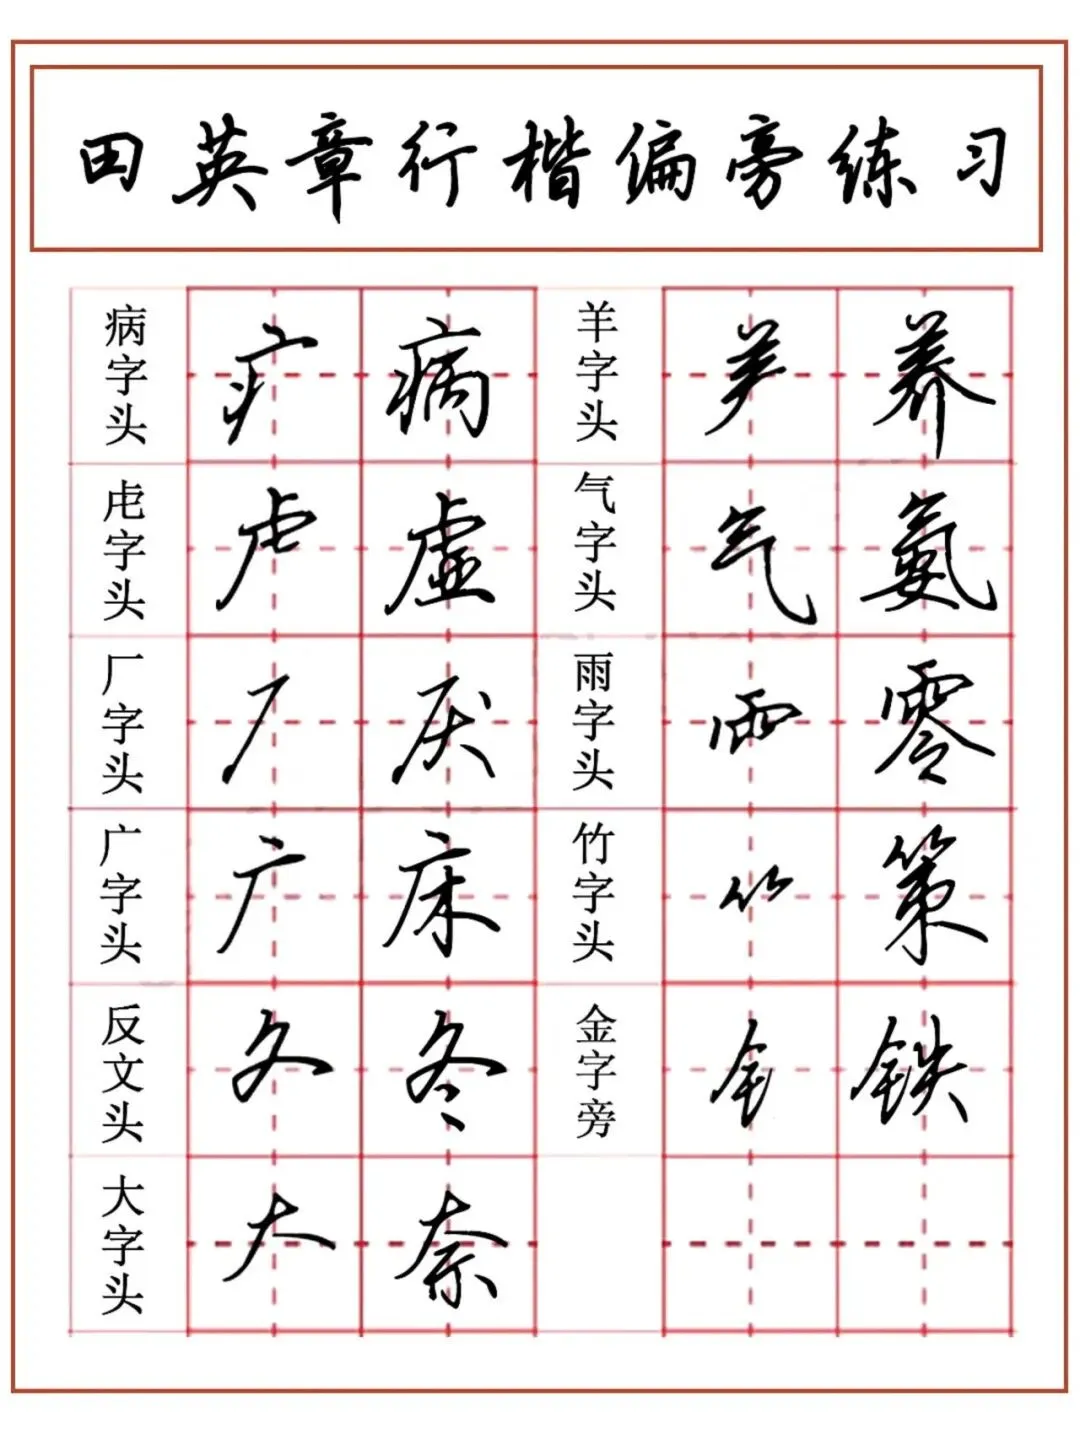 田英章行楷偏旁练习
病字头 疒 病 羊字头 ⺶ 养
虍字头 虍 虚 气字头 气 氨
厂字头 厂 厌 雨字头 ⻗ 零
广字头 广 床 竹字头 ⺮ 策
反文头 夂 冬 金字旁 钅 铁
大字头 大 奈